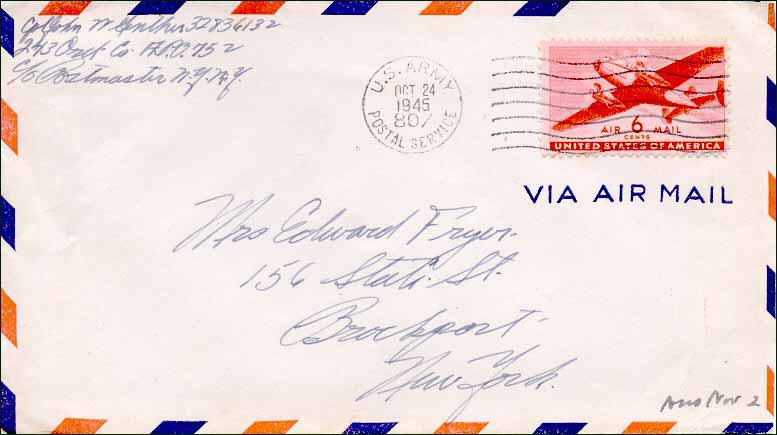 Cpl John W Genther 32836132
243 Ord Co A.P.O. 752
C/O Postmaster N.Y. N.Y.
U.S. ARMY
OCT 24
1945
807
POSTAL SERVICE
AIR 6 MAIL
CENTS
UNITED STATES OF AMERICA
VIA AIR MAIL
Mrs Edward Fryer.
156 State. St.
Brockport.
New York.
Ans Nov 2